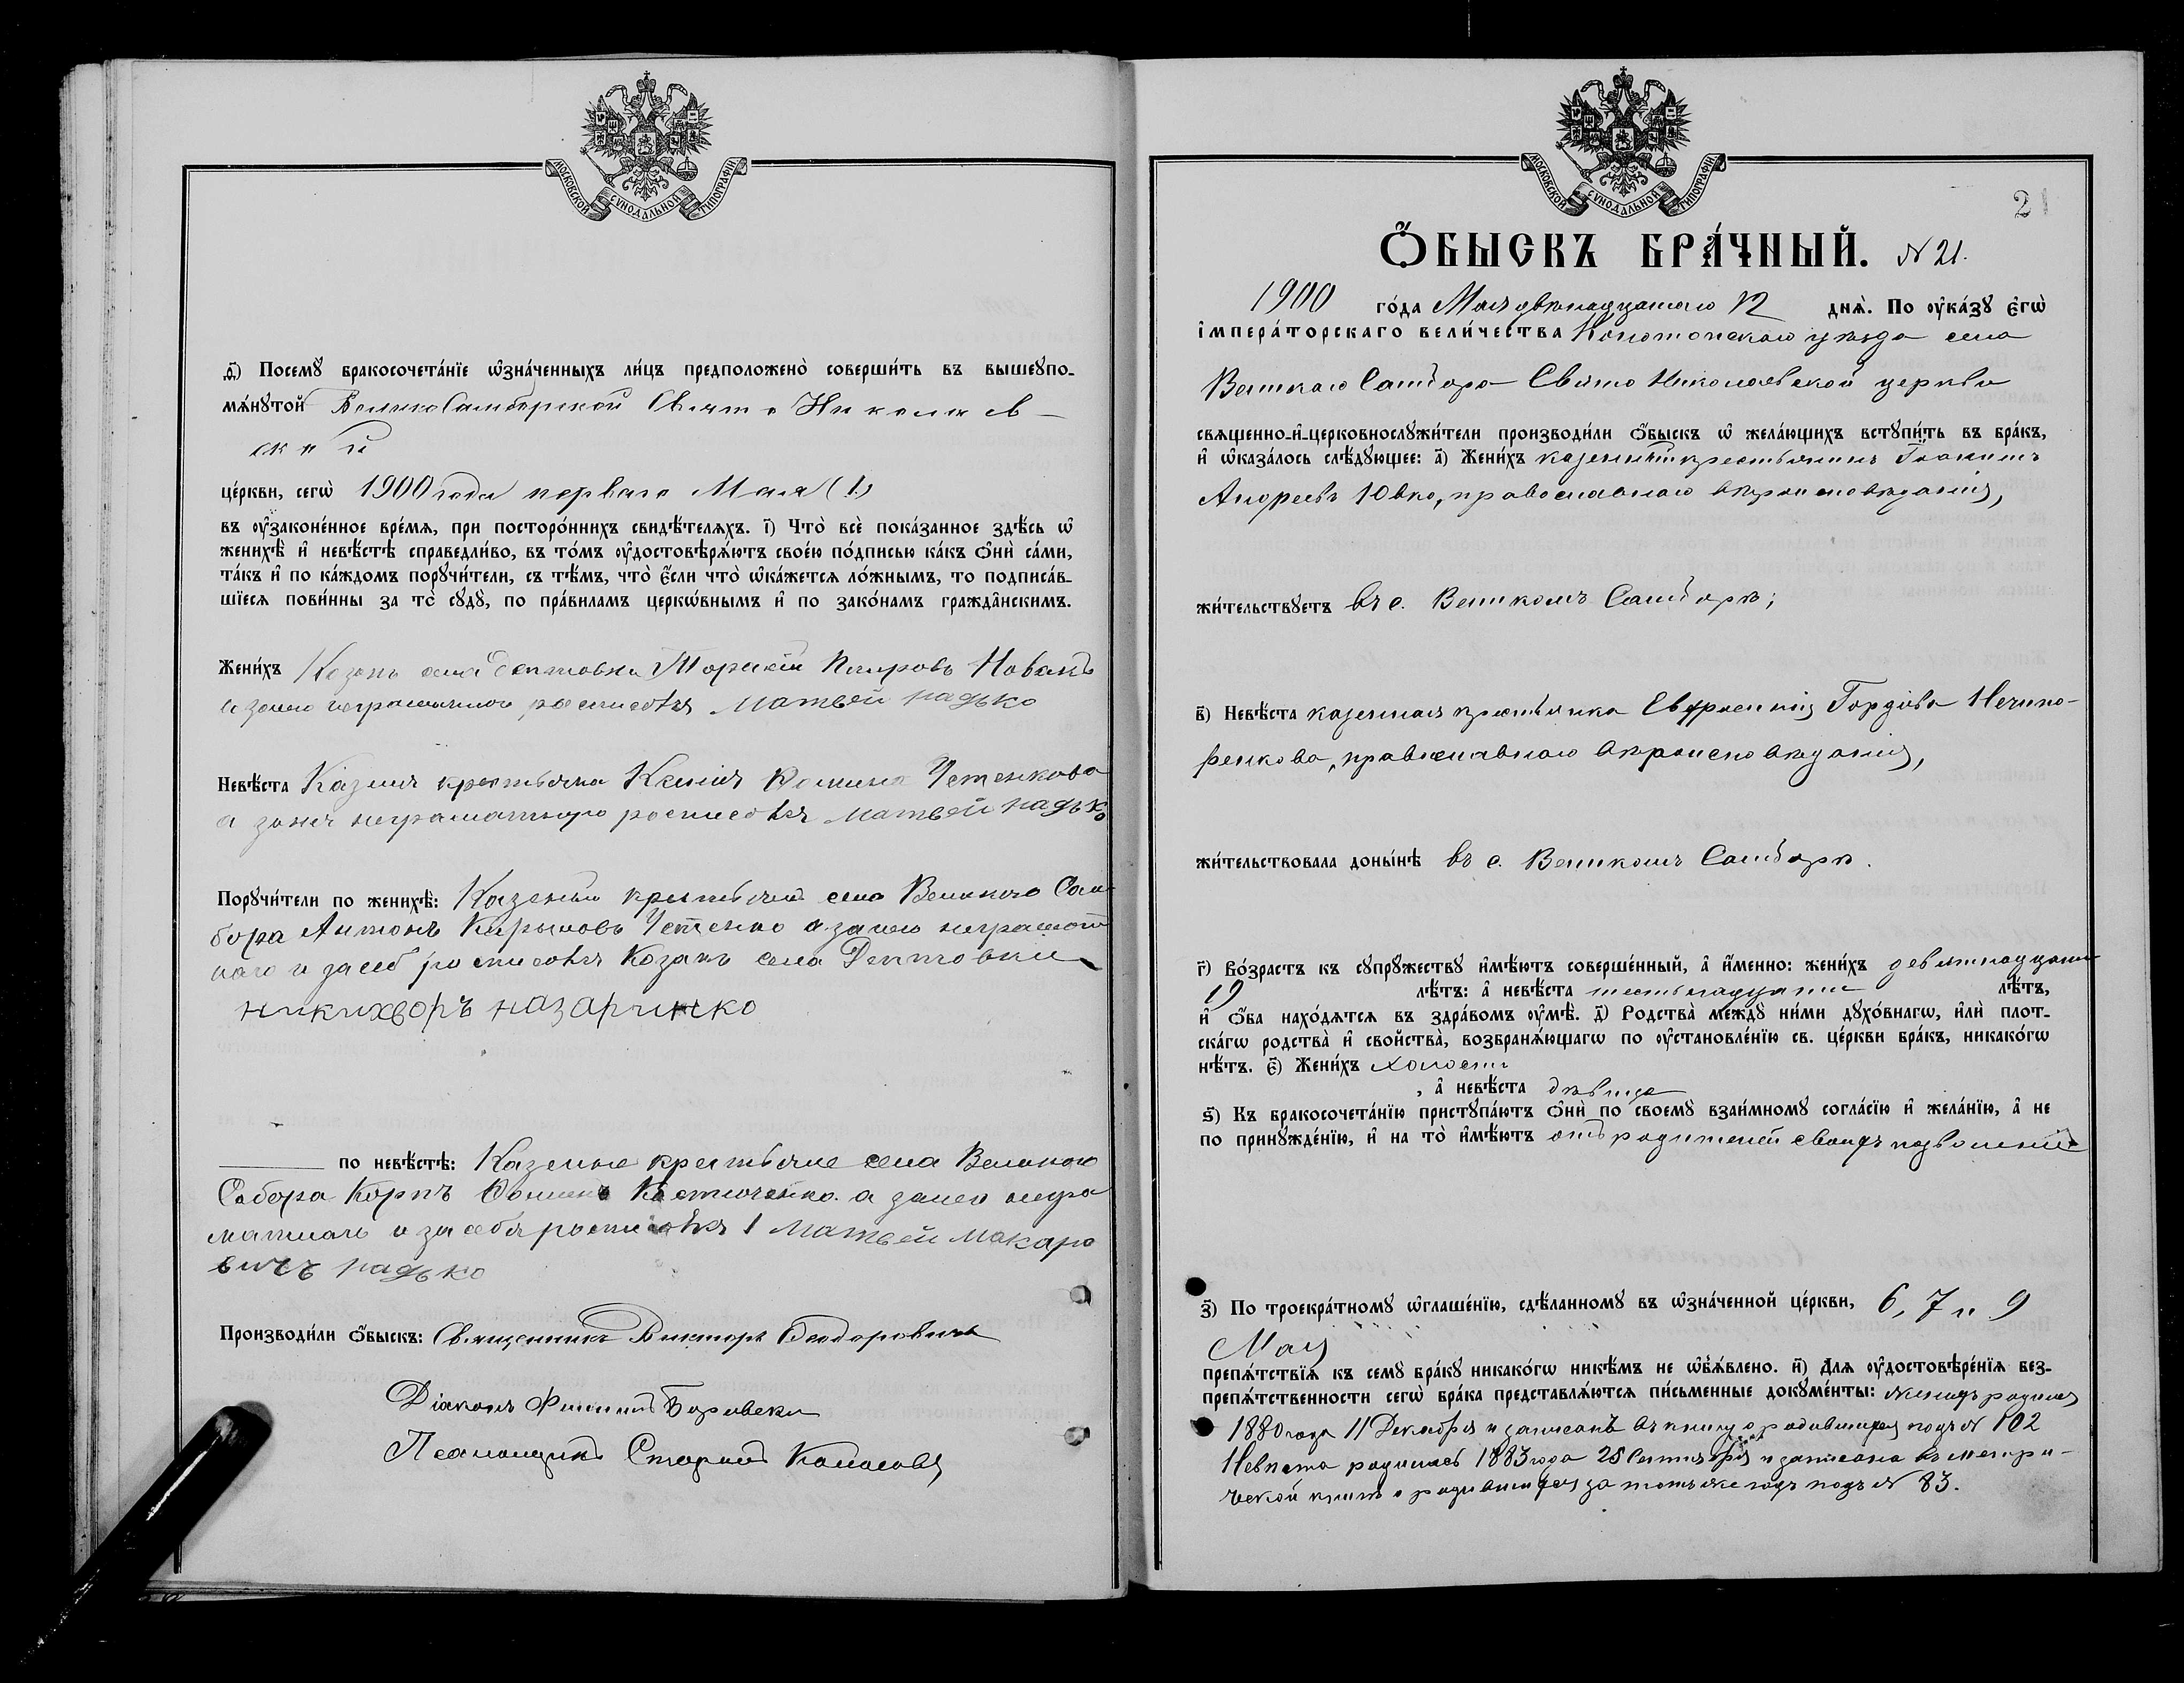 МОСКОВСКОЙ СѴНОДАЛЬНОЙ ТИПОГРАФІИ
ѳ҃) Посемꙋ̀ бракосочета́нїе ѡ҆зна́ченныхъ ли́цъ предположено̀ соверши́ть въ вышеꙋпо-
мѧ́нꙋтой ВеликоСамборской Свято Николаев-
ской
це́ркви, сегѡ̀ 1900 года перваго Мая (1)
въ ᲂу҆законе́нное вре́мѧ, при посторо́ннихъ свидѣ́телѧхъ. і҃) Что̀ всѐ пока́занное здѣ́сь ѡ҆
женихѣ̀ и҆ невѣ́стѣ справедли́во, въ то́мъ ᲂу҆достовѣрѧ́ютъ свое́ю по́дписью ка́къ ѻ҆нѝ са́ми,
та́къ и҆ по ка́ждомъ порꙋчи́тели, съ тѣ́мъ, что̀ є҆́сли что̀ ѡ҆ка́жетсѧ ло́жнымъ, то подписа́в-
шїесѧ пови́нны за то̀ сꙋдꙋ̀, по пра́виламъ церкѡ́внымъ и҆ по зако́намъ гражда̂нскимъ.
Жени́хъ Козакъ села Дептовки Новакъ
а занего неграмотнаго росписався Матвей Надько
Невѣ́ста Казеная крестьянка Ксенія Устенкова
а занея неграматную росписався Матвей Надько
Порꙋчи́тели по женихѣ̀: Казеный крестьянинъ села Великого Сам-
бора Антонъ Устенко а занего неграмот
наго и засеб росписовся Козакъ села Дептовки
никихворъ назаринко
по невѣ́стѣ: Казеные крестьяне села Великого
Собора Карпъ Костюченко а занего негра
матнаго и засебя росписався Матвей Макаро
вичъ Надько
Производи́ли ѻ҆́быскъ: Священникъ Викторъ Ѳеодоровичъ
Діаконъ Филиппъ Боровски
Псаломщикъ
МОСКОВСКОЙ СѴНОДАЛЬНОЙ ТИПОГРАФІИ
21
Ѻ҆́БЫСКЪ БРА́ЧНЫЙ. N 21.
1900 го́да Мая двѣнадцатаго 12 днѧ̀. По ᲂу҆ка́зꙋ є҆гѡ̀
і҆мпера́торскаго вели́чества Конотопскаго уѣзда села
Великаго Самбора Свято Николаевской церкви
свѧщенно-и҆-церковнослꙋжи́тели производи́ли ѻ҆́быскъ ѡ҆ жела́ющихъ встꙋпи́ть въ бра́къ,
и҆ ѡ҆каза́лось слѣ́дꙋющее: а҃) Жени́хъ казенный крестьянинъ Іоакимъ
Андреевъ Ювко, православнаго вѣроисповѣданія,
жи́тельствꙋетъ въ с. Великомъ Самборѣ;
в҃) Невѣ́ста казенная крестьянка Евфросинія Гордіева Нечипо-
ренкова, православнаго вѣроисповѣданія,
жи́тельствовала доны́нѣ въ с. Великомъ Самборѣ.
г҃) Во́зрастъ къ сꙋпрꙋ́жествꙋ и҆мѣ́ютъ соверше́нный, а҆ и҆́менно: жени́хъ девятнадцати
19 лѣ́тъ: а҆ невѣ́ста шестьнадцати лѣ́тъ,
и҆ ѻ҆́ба нахо́дѧтсѧ въ здра́вомъ ᲂу҆мѣ̀. д҃) Родства̀ междꙋ̀ ни́ми дꙋхо́внагѡ, и҆лѝ плот-
ска́гѡ родства̀ и҆ сво́йства̀, возбранѧ́ющагѡ по ᲂу҆становле́нїю св. це́ркви бра́къ, никако́гѡ
нѣ́тъ. є҃) Жени́хъ холостъ
, а҆ невѣ́ста дѣвица
ѕ҃) Къ бракосочета́нїю пристꙋпа́ютъ ѻ҆нѝ по своемꙋ̀ взаи́мномꙋ согла́сїю и҆ жела́нїю, а҆ не
по принꙋжде́нїю, и҆ на то̀ и҆мѣ́ютъ отъ родителей своихъ позволеніе
з҃) По троекра́тномꙋ ѡ҆глаше́нїю, сдѣ́ланномꙋ въ ѡ҆зна́ченной це́ркви, 6, 7 и 9
Мая
препѧ́тствїѧ къ семꙋ̀ бра́кꙋ никако́гѡ никѣ́мъ не ѡ҆б̾ѧ́влено. и҃) Длѧ ᲂу҆достовѣре́нїѧ без-
препѧ́тственности сегѡ̀ бра́ка представлѧ́ютсѧ пи́сьменные докꙋме́нты: женихъ родился
1880 года 11 Декабря и записанъ въ книгу о родившихся подъ N 102
Невѣста родилась 1883 года 25 Сентября и записана въ метри-
ческой книгѣ о родившихся за тотъ же годъ подъ N 83.